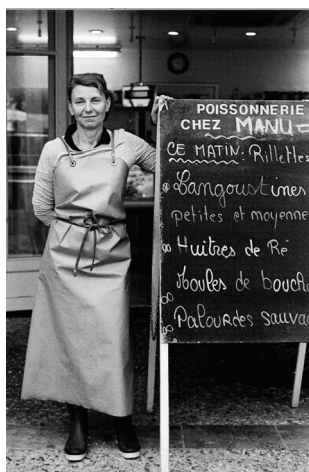 POISSONNERIE
CHEZ MANU
CE MATIN: Rillettes
Langoustines
petites et moyenne
Huîtres de Ré
Moules de boucho
Palourdes sauva